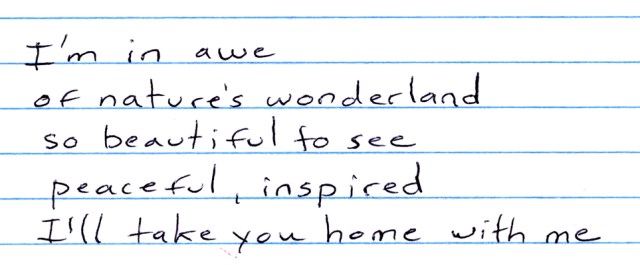 I'm in awe
of nature's wonderland
so beautiful to see
peaceful, inspired
I'll take you home with me